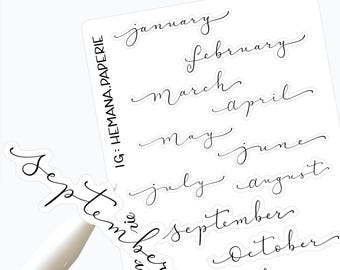 january
february
march
april
may
june
july
august
september
october
IG: HEMANA.PAPERIE
september
rie